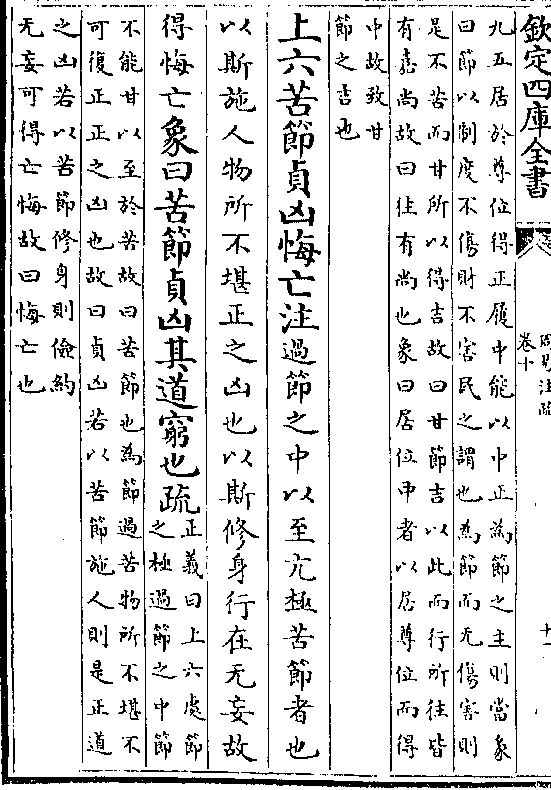 欽定四庫全書
周易注疏
卷十
十一
九五居於尊位得正履中能以中正為節之主則當彖
曰節以制度不傷財不害民之謂也為節而无傷害則
是不苦而甘所以得吉故曰甘節吉以此而行所往皆
有嘉尚故曰往有尚也象曰居位中者以居尊位而得
中故致甘
節之吉也
上六苦節貞凶悔亡注過節之中以至亢極苦節者也
以斯施人物所不堪正之凶也以斯修身行在无妄故
得悔亡象曰苦節貞凶其道窮也疏正義曰上六處節
之極過節之中節
不能甘以至於苦故曰苦節也為節過苦物所不堪不
可復正正之凶也故曰貞凶若以苦節施人則是正道
之凶若以苦節修身則儉約
无妄可得亡悔故曰悔亡也